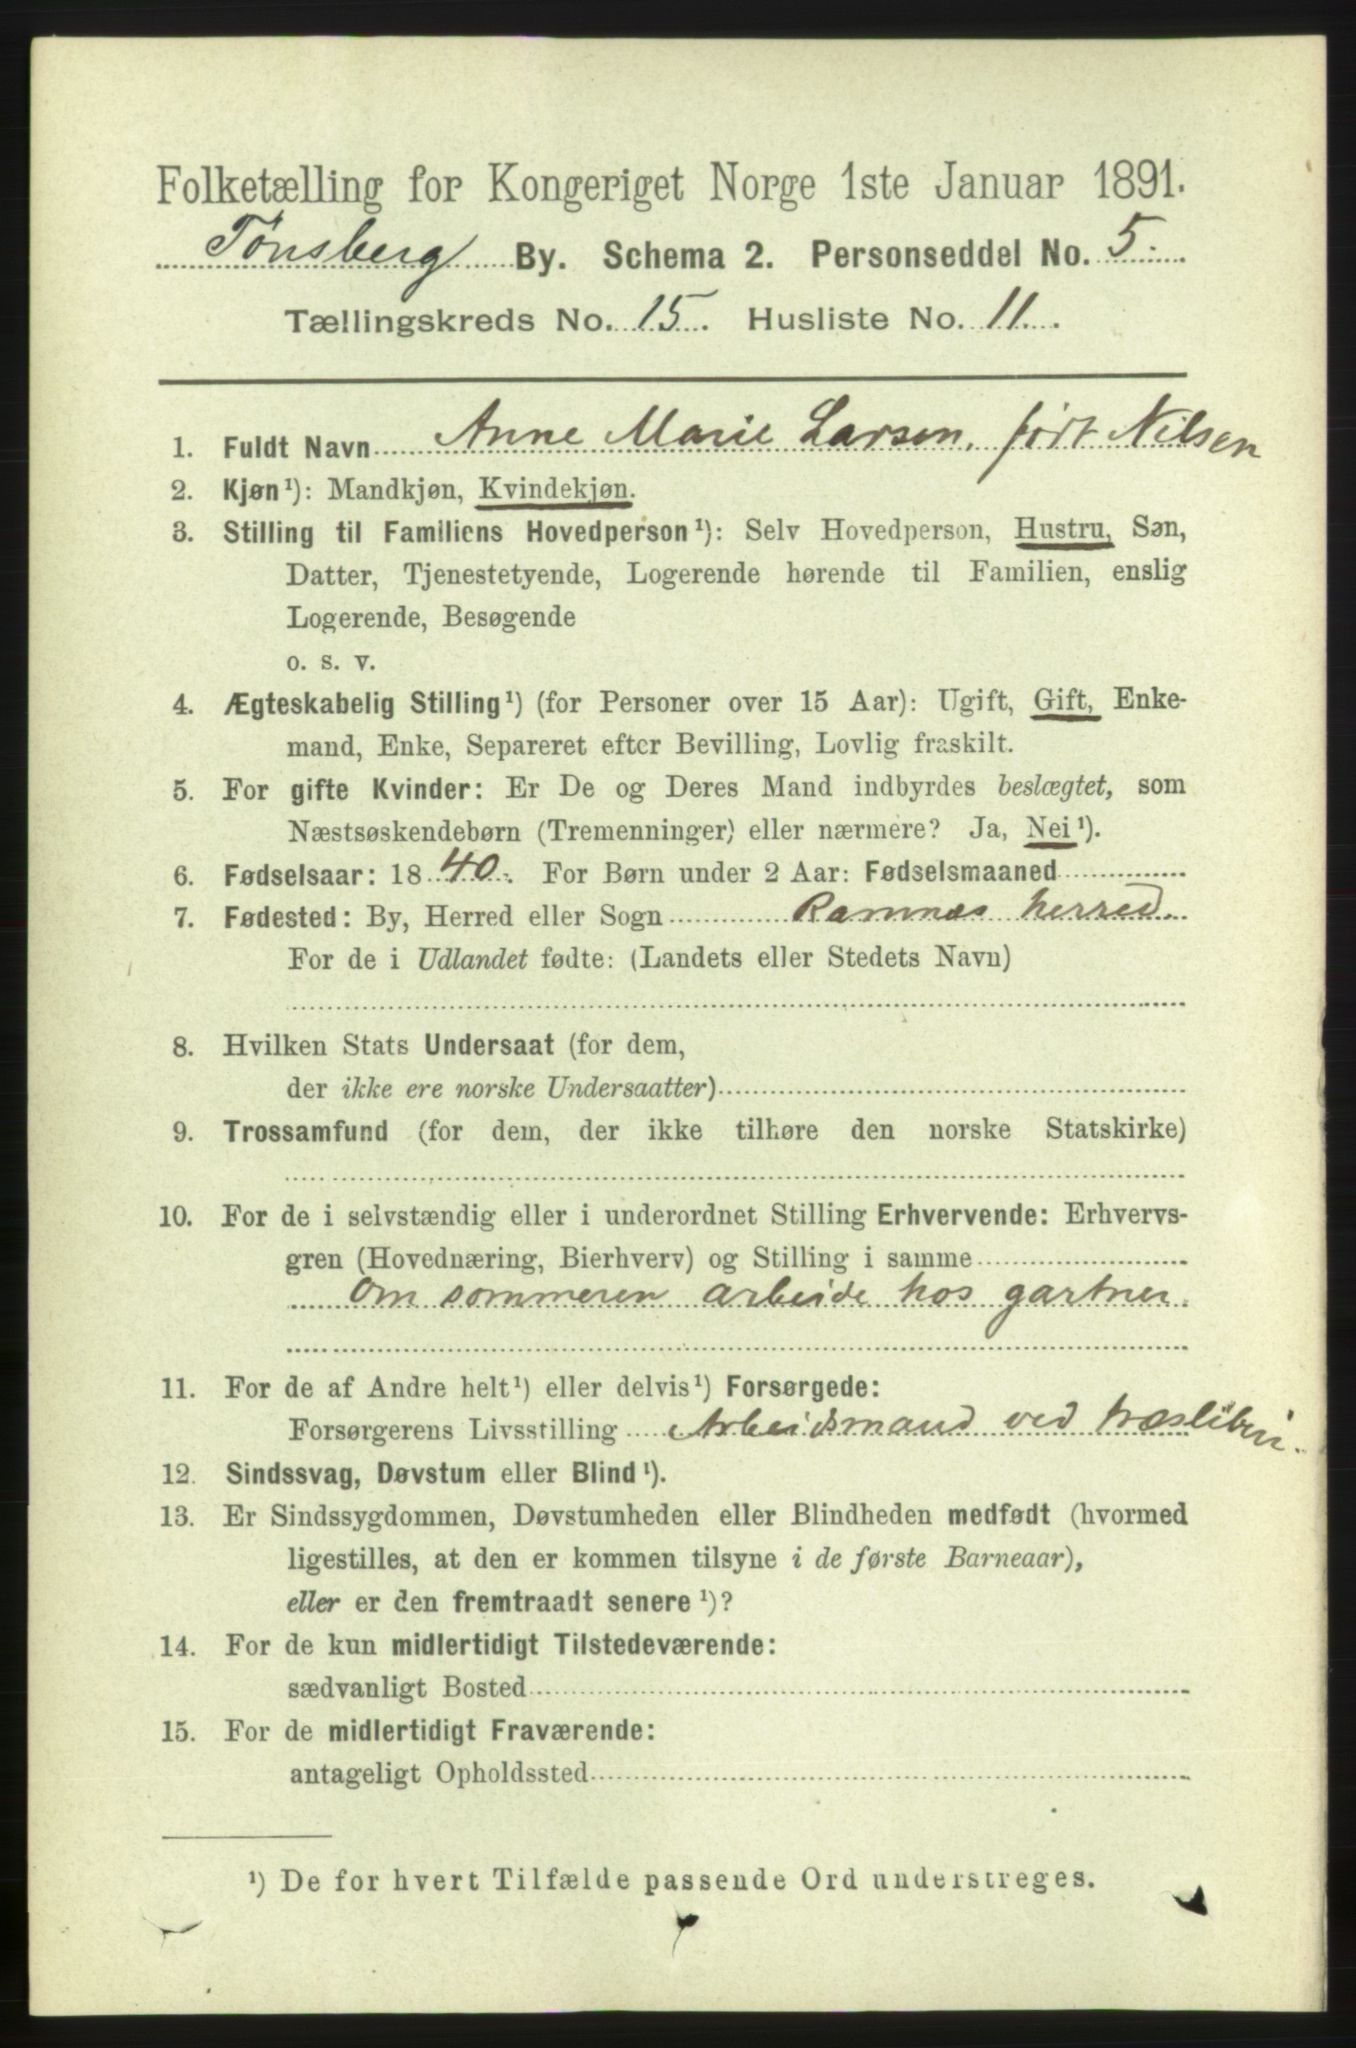 Folketælling for Kongeriget Norge 1ste Januar 1891.
Tønsberg By. Schema 2. Personseddel No. 5.
Tællingskreds No. 15. Husliste No. 11.
1. Fuldt Navn Anne Marie Larsen, født Nilsen
2. Kjøn¹): Mandkjøn, Kvindekjøn.
3. Stilling til Familiens Hovedperson¹): Selv Hovedperson, Hustru, Søn,
Datter, Tjenestetyende, Logerende hørende til Familien, enslig
Logerende, Besøgende
o. s. v.
4. Ægteskabelig Stilling¹) (for Personer over 15 Aar): Ugift, Gift, Enke-
mand, Enke, Separeret efter Bevilling, Lovlig fraskilt.
5. For gifte Kvinder: Er De og Deres Mand indbyrdes beslægtet, som
Næstsøskendebørn (Tremenninger) eller nærmere? Ja, Nei¹).
6. Fødselsaar: 1840. For Børn under 2 Aar: Fødselsmaaned
7. Fødested: By, Herred eller Sogn Ramnæs herred.
For de i Udlandet fødte: (Landets eller Stedets Navn)
8. Hvilken Stats Undersaat (for dem,
der ikke ere norske Undersaatter)
9. Trossamfund (for dem, der ikke tilhøre den norske Statskirke)
10. For de i selvstændig eller i underordnet Stilling Erhvervende: Erhvervs-
gren (Hovednæring, Bierhverv) og Stilling i samme
Om sommeren arbeide hos gartner.
11. For de af Andre helt¹) eller delvis¹) Forsørgede:
Forsørgerens Livsstilling Arbeidsmand ved træsliberi.
12. Sindssvag, Døvstum eller Blind¹).
13. Er Sindssygdommen, Døvstumheden eller Blindheden medfødt (hvormed
ligestilles, at den er kommen tilsyne i de første Barneaar),
eller er den fremtraadt senere¹)?
14. For de kun midlertidigt Tilstedeværende:
sædvanligt Bosted
15. For de midlertidigt Fraværende:
antageligt Opholdssted
¹) De for hvert Tilfælde passende Ord understreges.